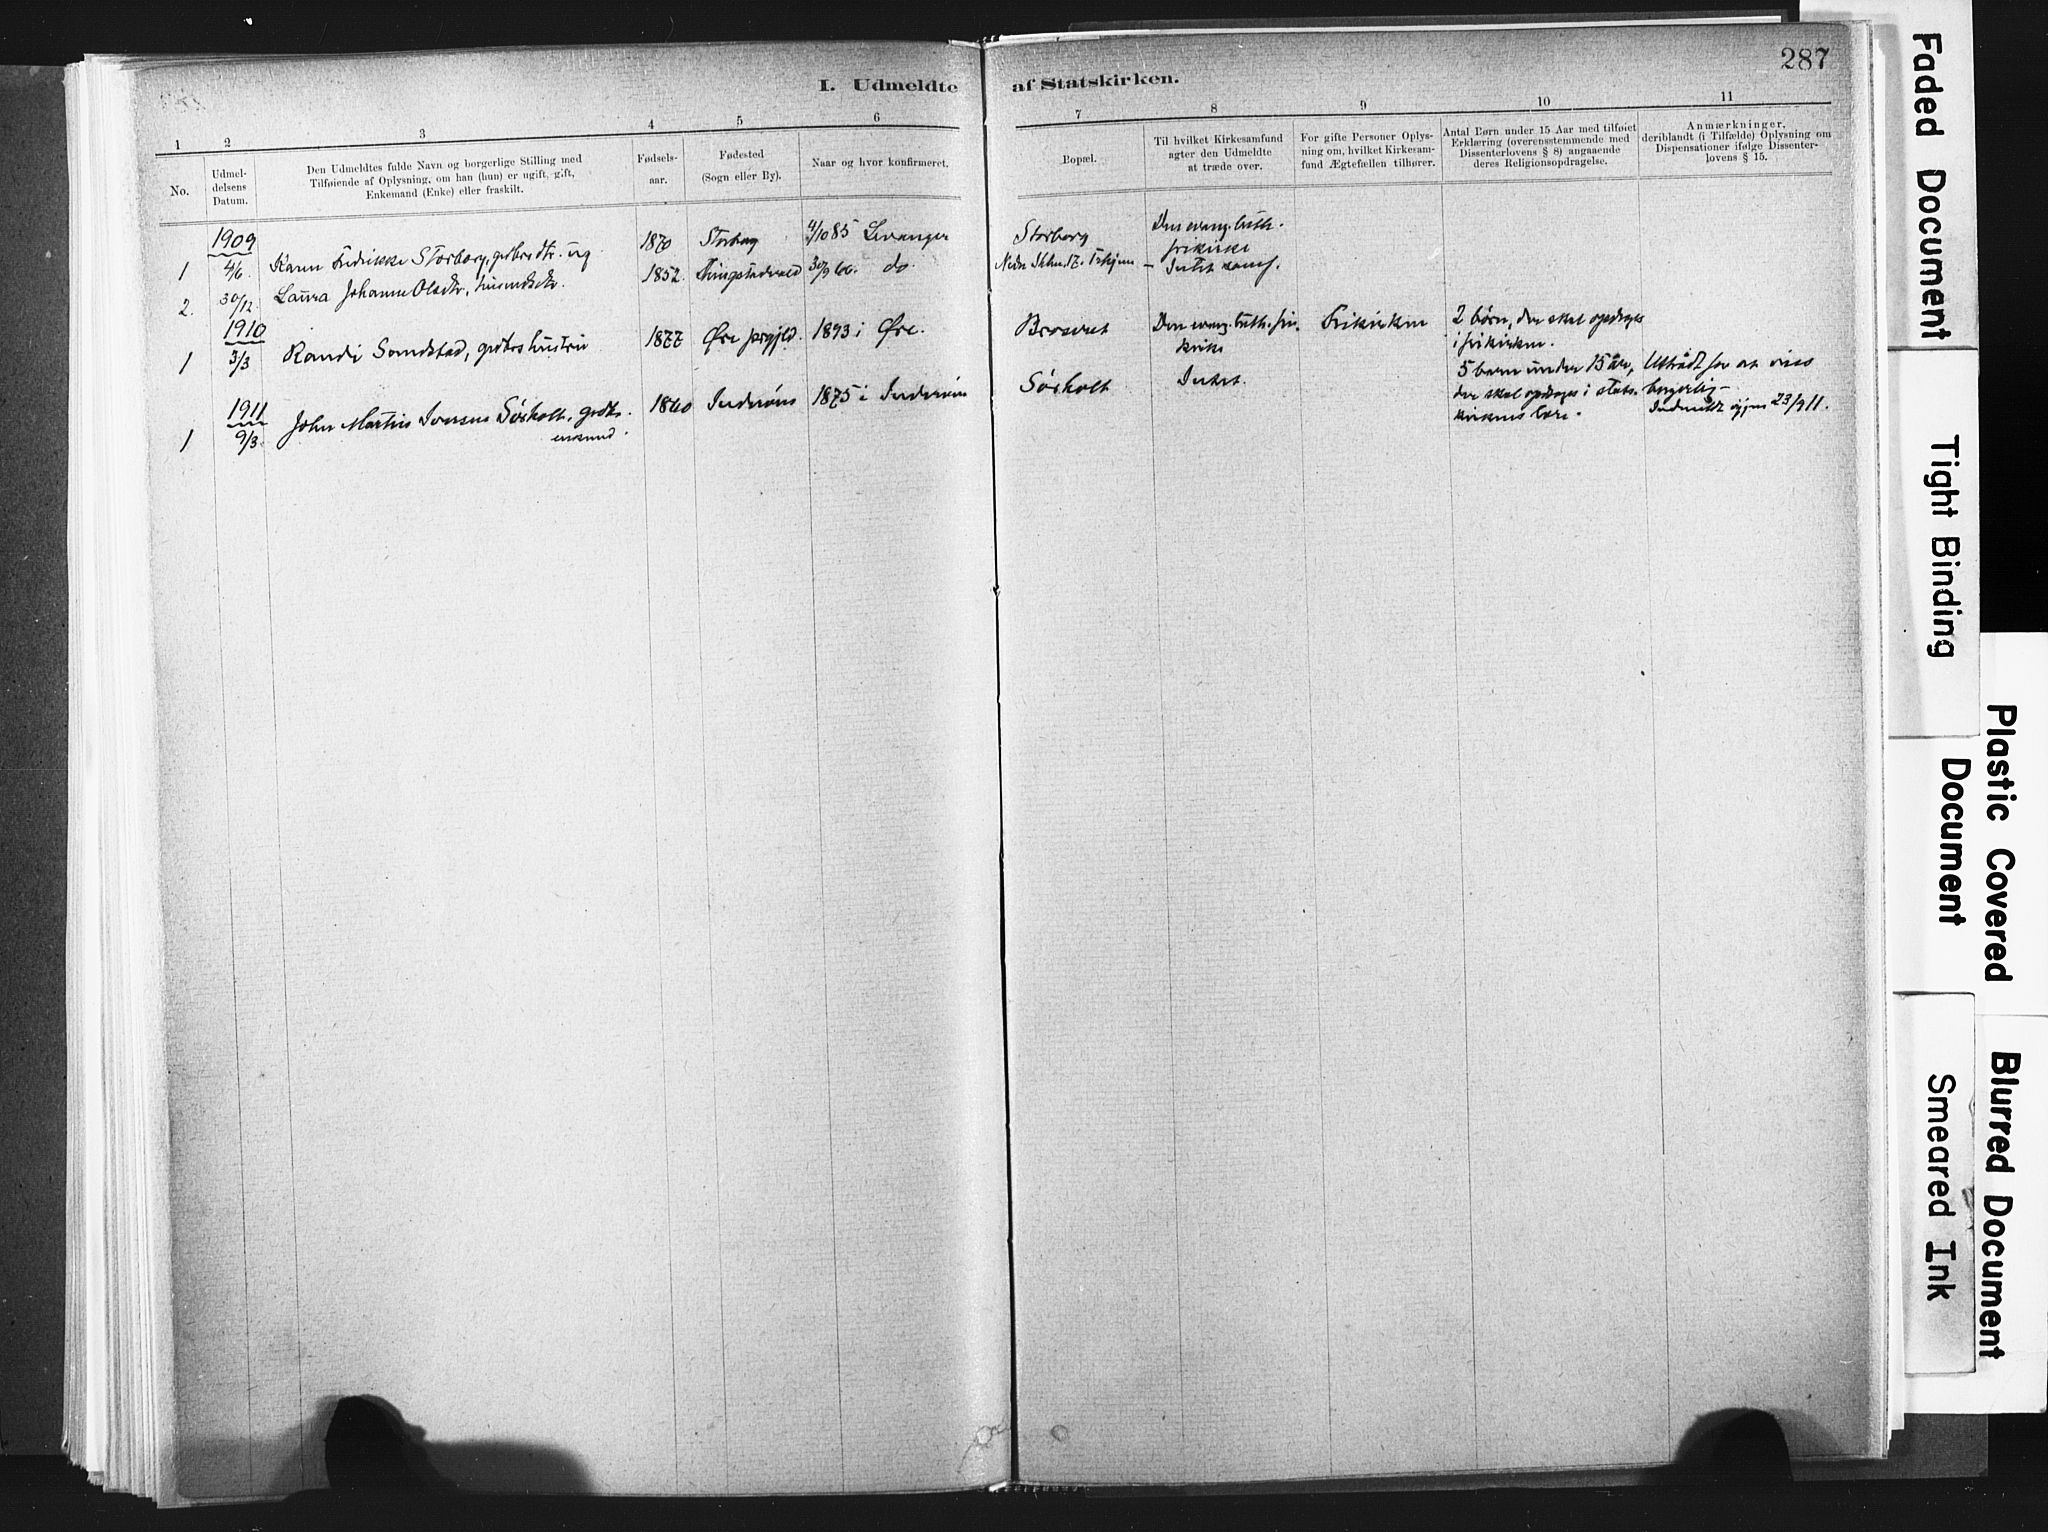 287
I. Udmeldte af Statskirken.
1 2 3 4 5 6 7 8 9 10 11
No.
Udmel-
delsens
Datum.
Den Udmeldtes fulde Navn og borgerlige Stilling med
Tilføiende af Oplysning, om han (hun) er ugift, gift,
Enkemand (Enke) eller fraskilt.
Fødsels-
aar.
Fødested
(Sogn eller By).
Naar og hvor konfirmeret.
Bopæl.
Til hvilket Kirkesamfund
agter den Udmeldte
at træde over.
For gifte Personer Oplys-
ning om, hvilket Kirkesam-
fund Ægtefællen tilhører.
Antal Børn under 15 Aar med tilføiet
Erklæring (overensstemmende med
Dissenterlovens § 8) angaaende
deres Religionsopdragelse.
Anmærkninger,
deriblandt (i Tilfælde) Oplysning om
Dispensationer ifølge Dissenter-
lovens § 15.
1909
1 4/6 Karen Fredrikke Storborg, 1870 Storborg 4/10 85 Levanger Storborg Den evang. luth.
frikirke
2. 30/12 Laura Johanne Olsdtr., 1852 do. Intet samf.
1910
1 3/3 Randi Sandstad, grdbrs hustru 1877 Øre prgjeld. 1893 i Øre. Brosvet Den evang. luth. fri-
kirke
Frikirken
2 børn, der skal opdrages
i frikirken.
1911
1 9/3 John Martin Iversen Sørholt, grdbr.
enkemd.
1860 Inderøen 1875 i Inderøen Sørholt Intet.
5 barn under 15 år,
der skal opdrages i stats-
kirkens lære.
Uttrådt for at vies
borgerlig -
Indmeldt igjen 23/9 11.
Faded Document
Tight Binding
Plastic Covered
Document
Blurred Document
Smeared Ink